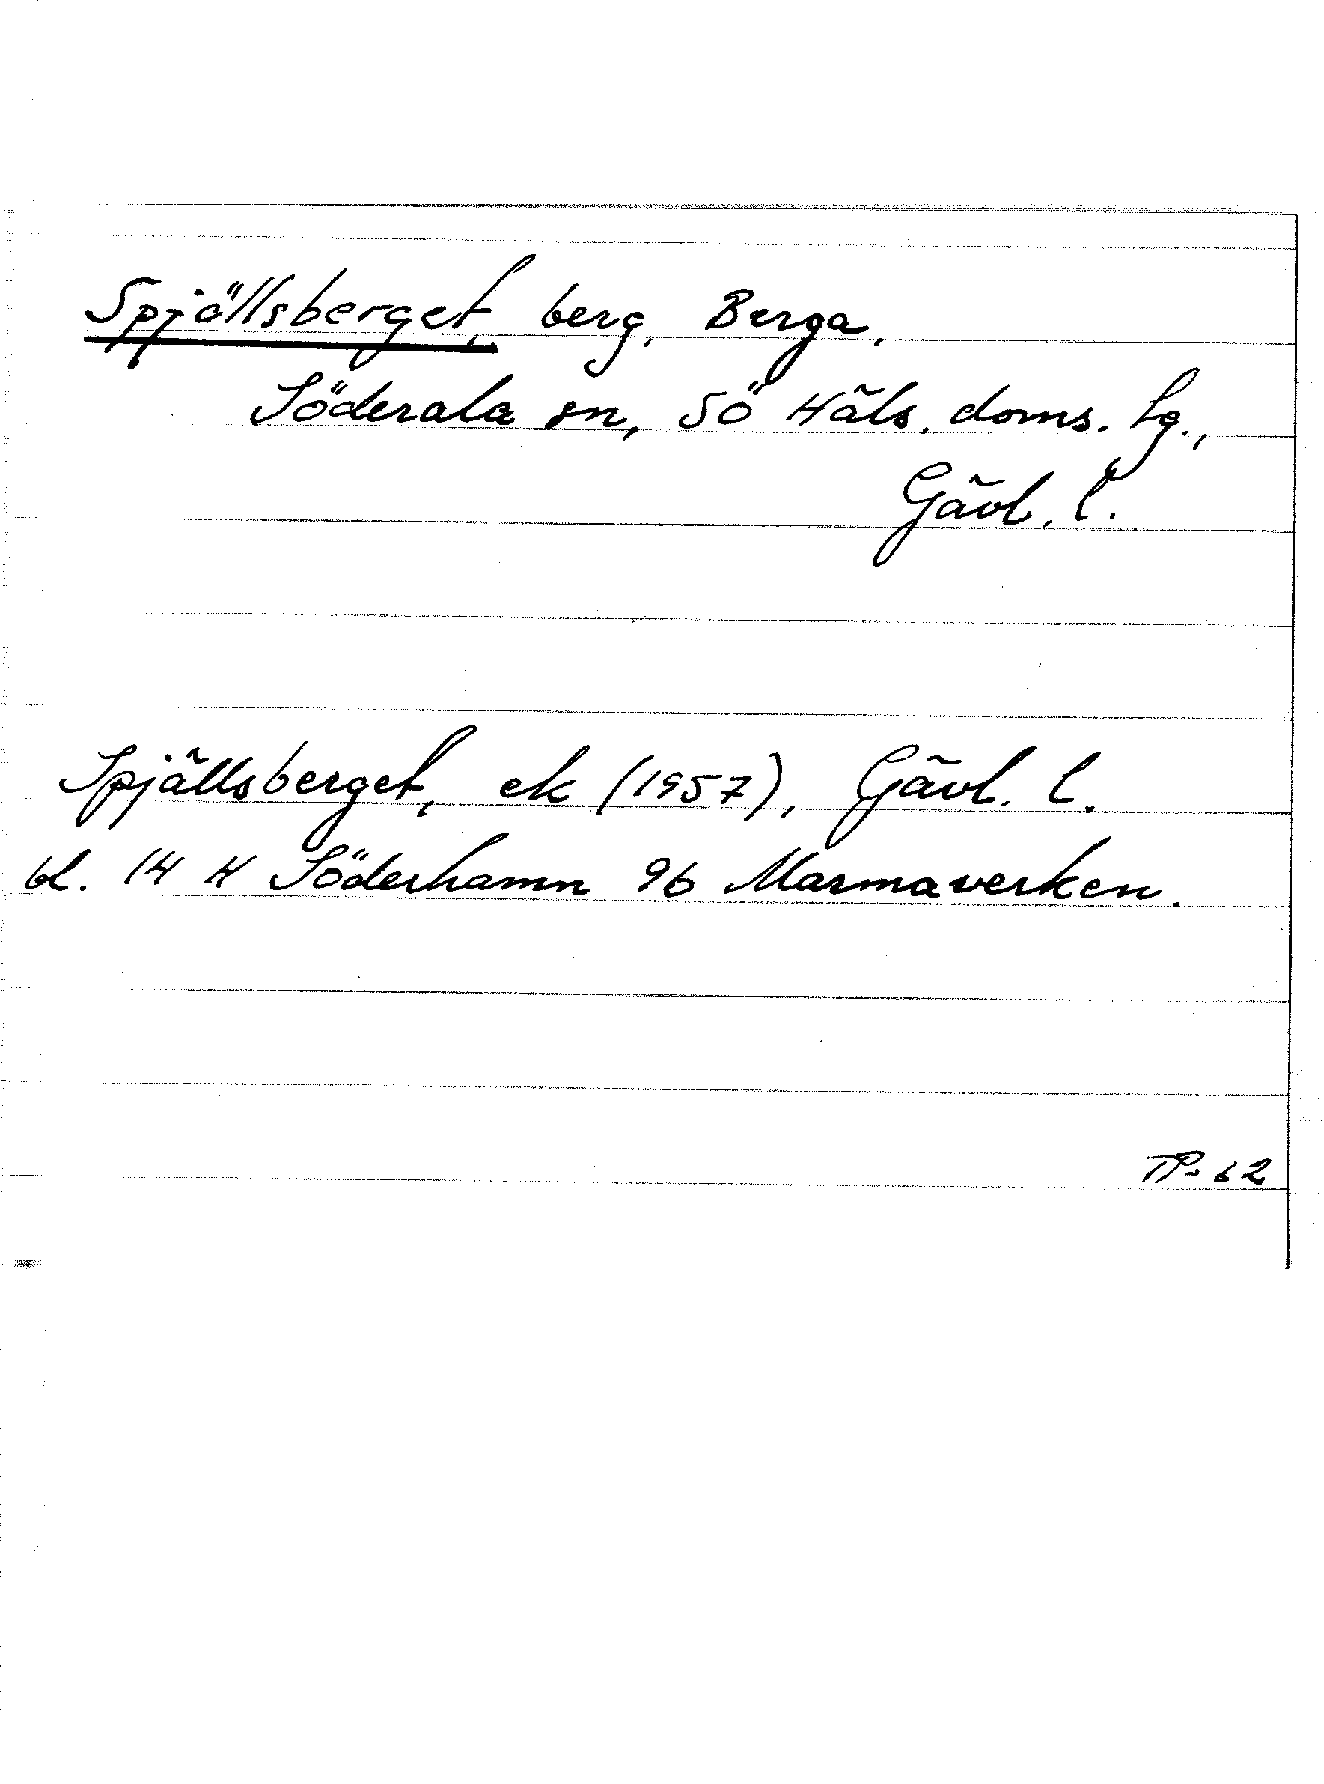 Spjällsberget, berg, Berga,
Söderala sn, SÖ Häls. doms. lg.,
Gävl. l.
Spjällsberget, ek (1957), Gävl. l.
bl. 14 H Söderhamn 9b Marmaverken.
TP-62